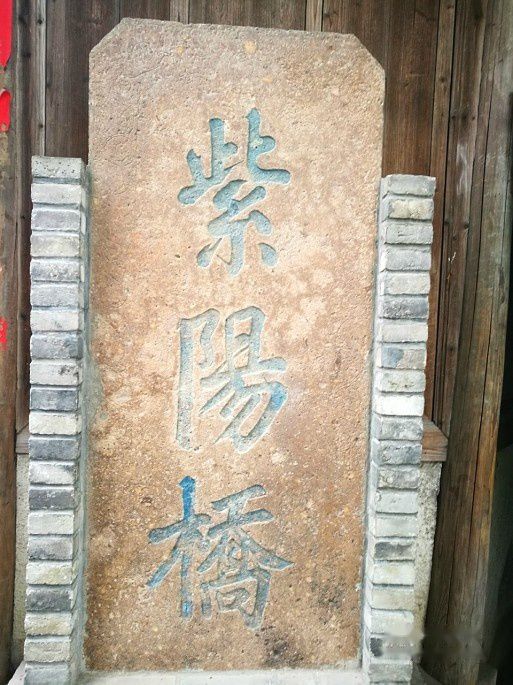 紫陽橋